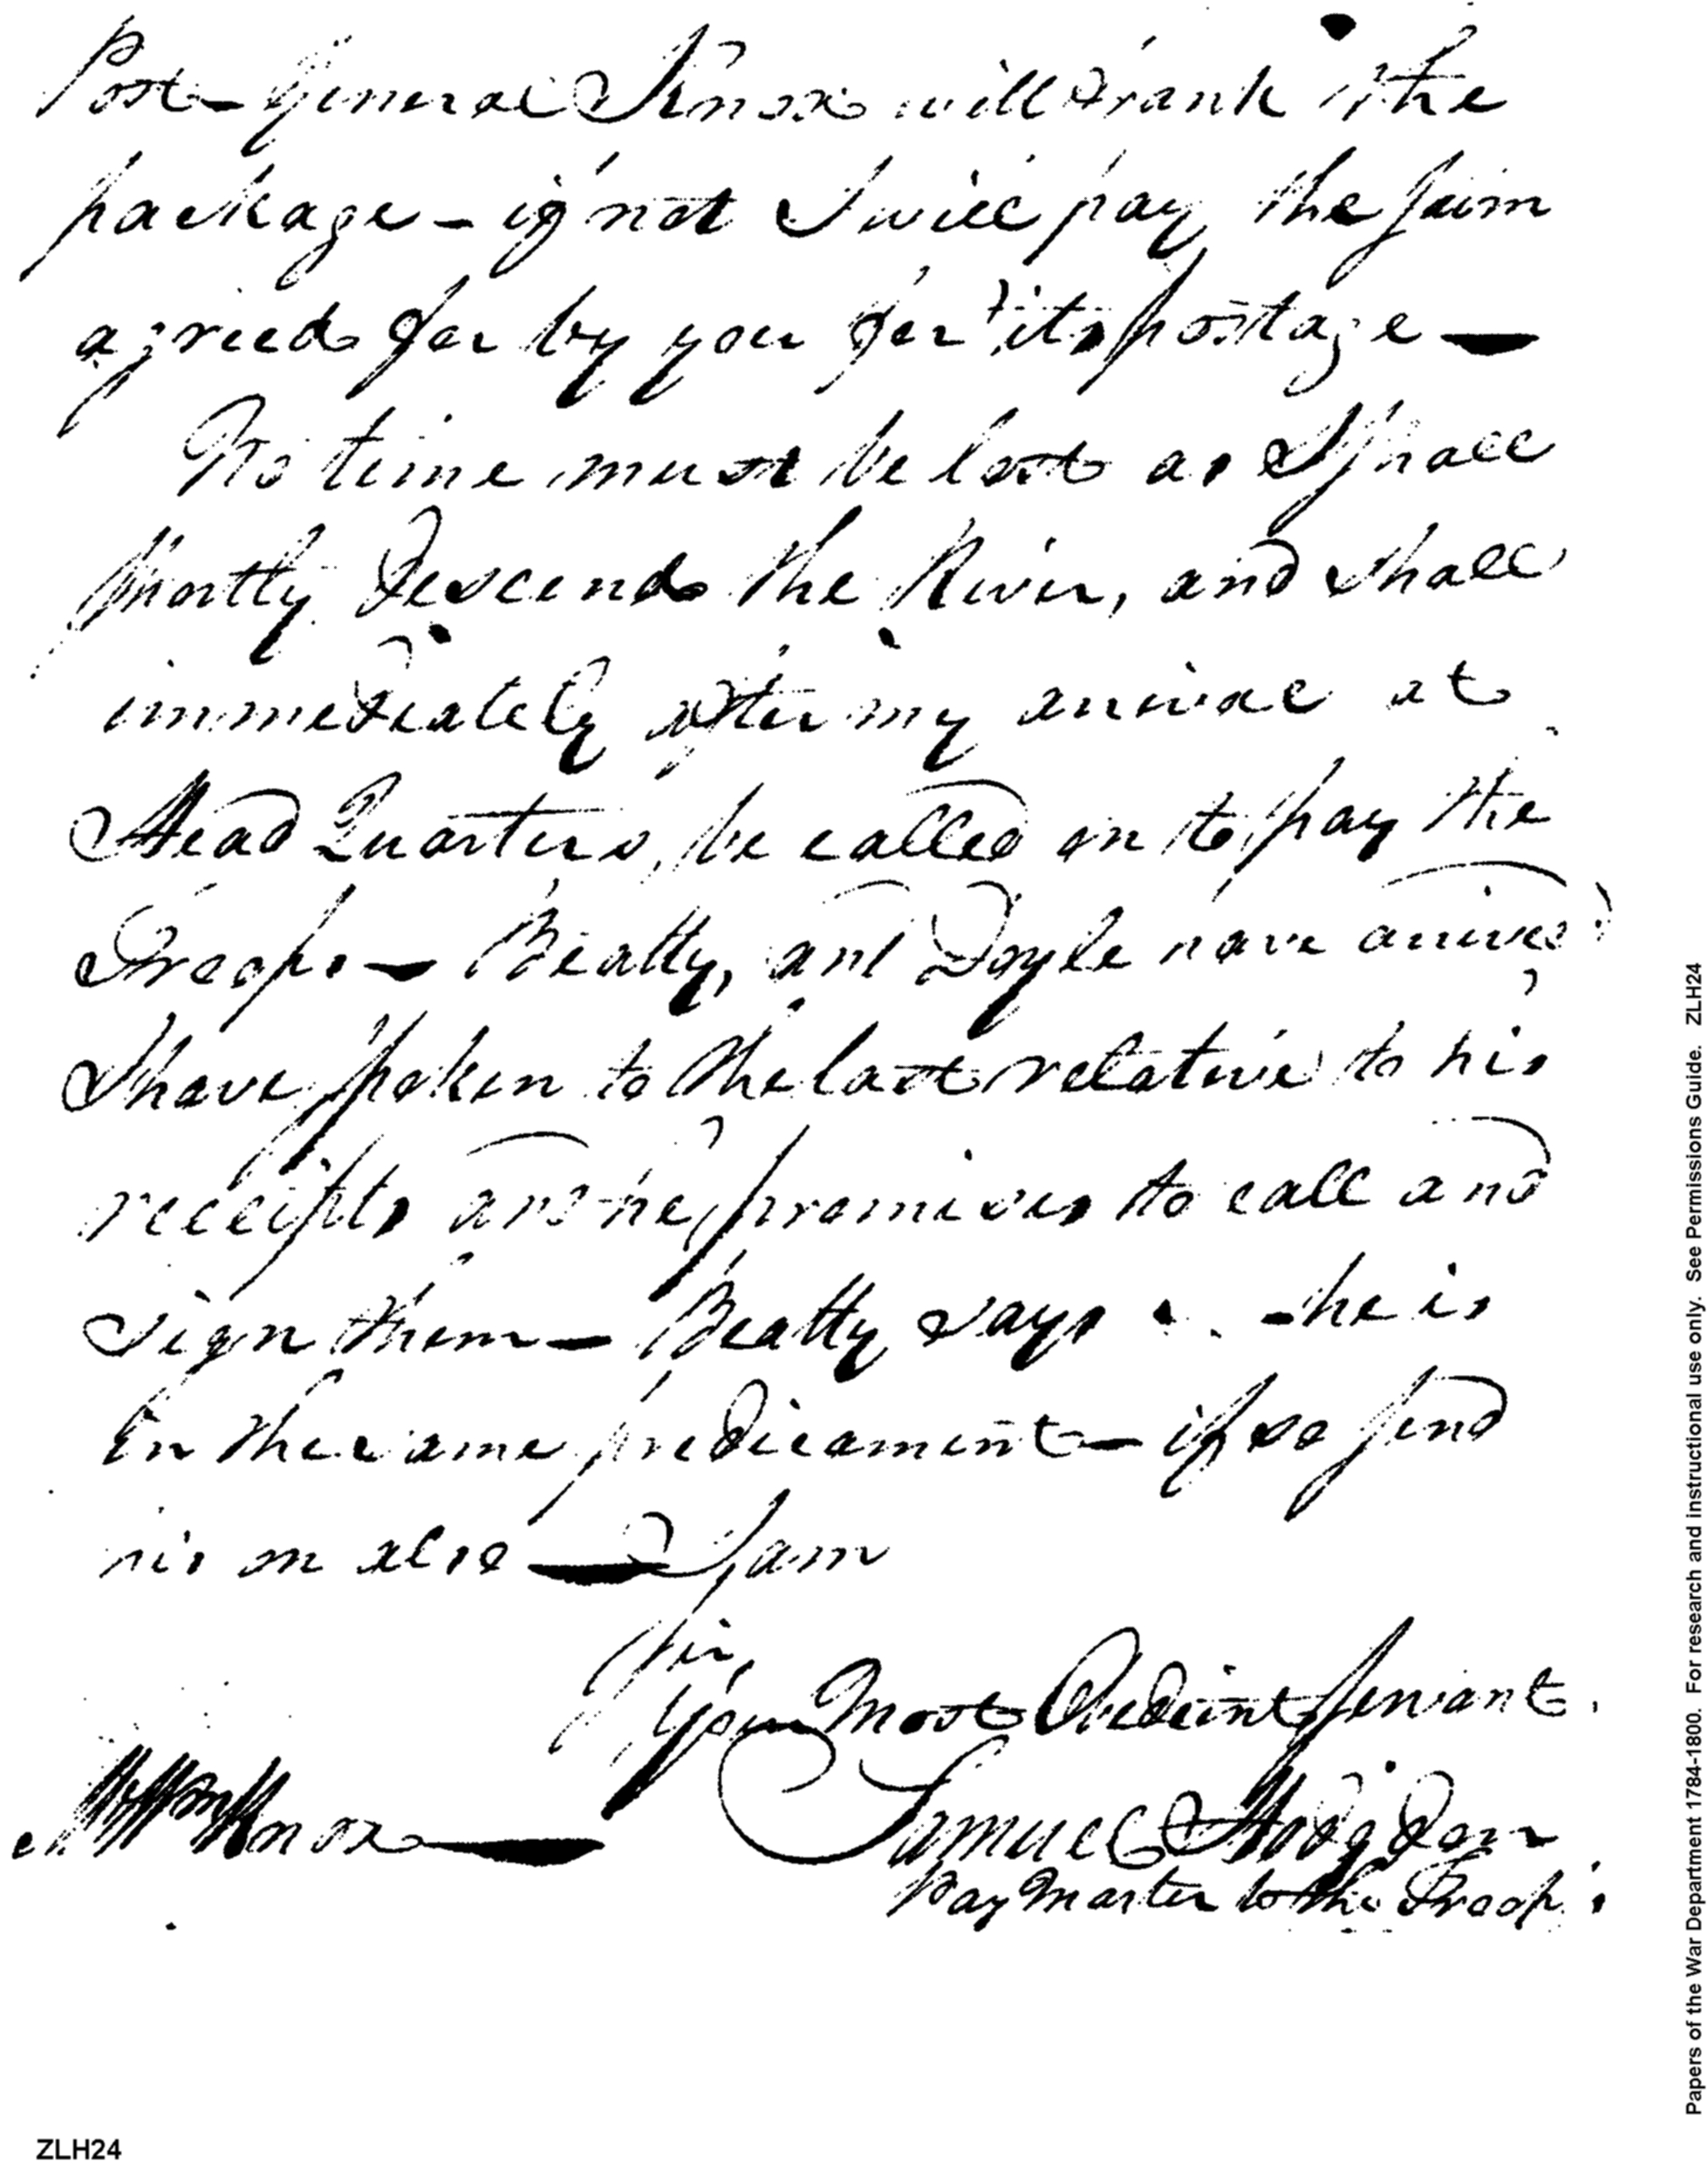 Post - General Knox will frank the
package - if not I will pay the sum
agreed for by you for its postage —
No time must be lost as I shall
shortly descend the River, and shall
immediately after my arrival at
Head Quarters, be called on to pay the
Troops — Beatty, and Doyle have arrived
I have spoken to the last relative to his
receipts and he promises to call and
sign them — Beatty says - he is
in the same predicament — if so send
his on also — I am
Sir
Your Most Obedient Servant.
Samuel Hodgdon
Pay Master to the Troops
Mr Wm Knox —
Papers of the War Department 1784-1800. For research and instructional use only. See Permissions Guide. ZLH24
ZLH24